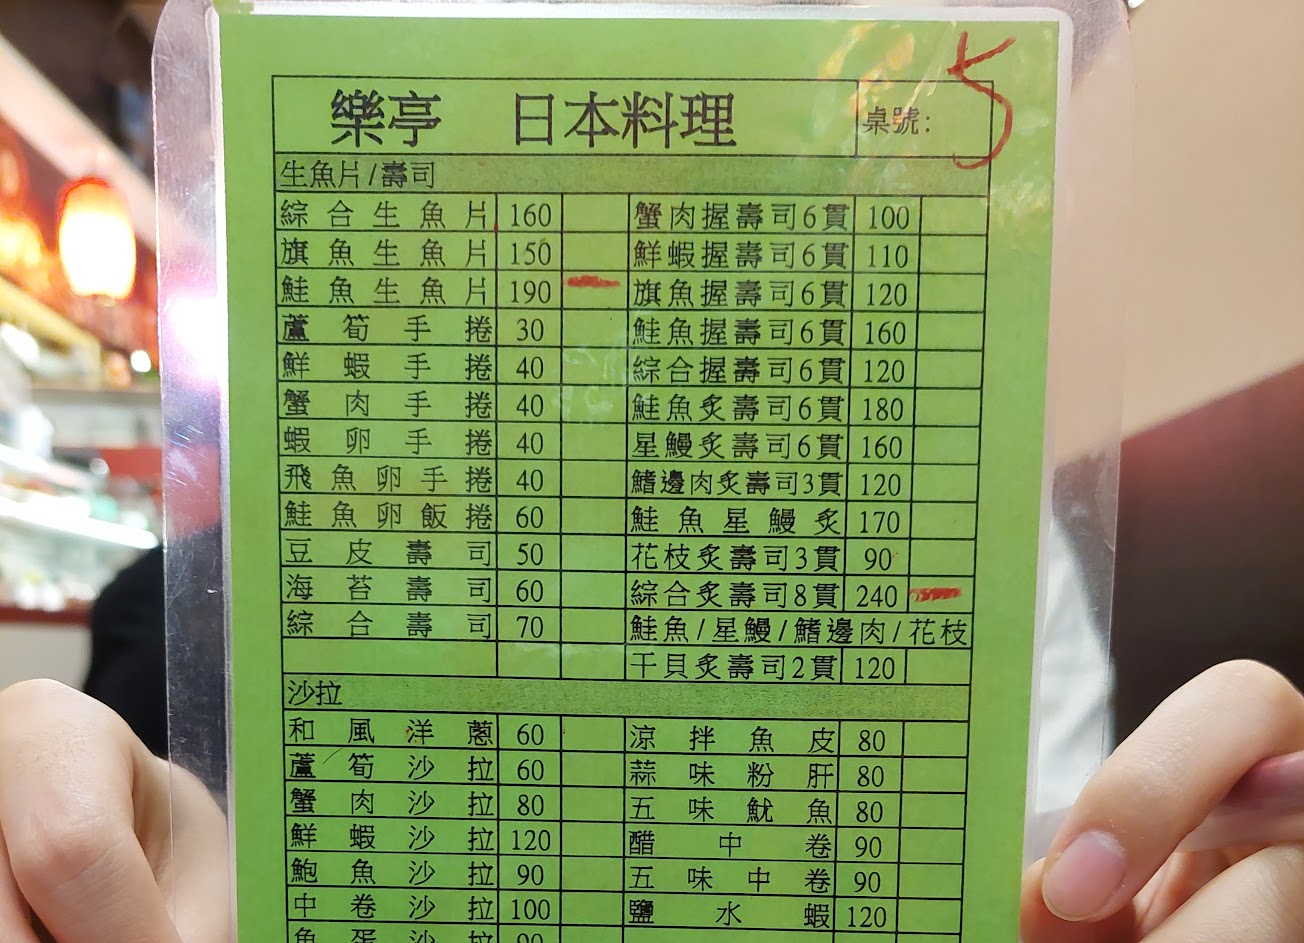 樂亭 日本料理 桌號: 5
生魚片/壽司
綜合生魚片 160 蟹肉握壽司6貫 100
旗魚生魚片 150 鮮蝦握壽司6貫 110
鮭魚生魚片 190 旗魚握壽司6貫 120
蘆筍手捲 30 鮭魚握壽司6貫 160
鮮蝦手捲 40 綜合握壽司6貫 120
蟹肉手捲 40 鮭魚炙壽司6貫 180
蝦卵手捲 40 星鰻炙壽司6貫 160
飛魚卵手捲 40 鰭邊肉炙壽司3貫 120
鮭魚卵飯捲 60 鮭魚星鰻炙 170
豆皮壽司 50 花枝炙壽司3貫 90
海苔壽司 60 綜合炙壽司8貫 240
綜合壽司 70 鮭魚/星鰻/鰭邊肉/花枝
干貝炙壽司2貫 120
沙拉
和風洋蔥 60 涼拌魚皮 80
蘆筍沙拉 60 蒜味粉肝 80
蟹肉沙拉 80 五味魷魚 80
鮮蝦沙拉 120 醋中卷 90
鮑魚沙拉 90 五味中卷 90
中卷沙拉 100 鹽水蝦 120
魚蛋沙拉 90